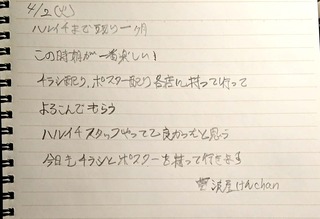 4/2(火)
ハルイチまで残り一ヶ月
この時期が一番楽しい!
チラシ配り、ポスター配り各店に持って行って
よろこんでもらう
ハルイチスタッフやってて良かったと思う
今日もチラシとポスターを持って行きます
波屋けんchan